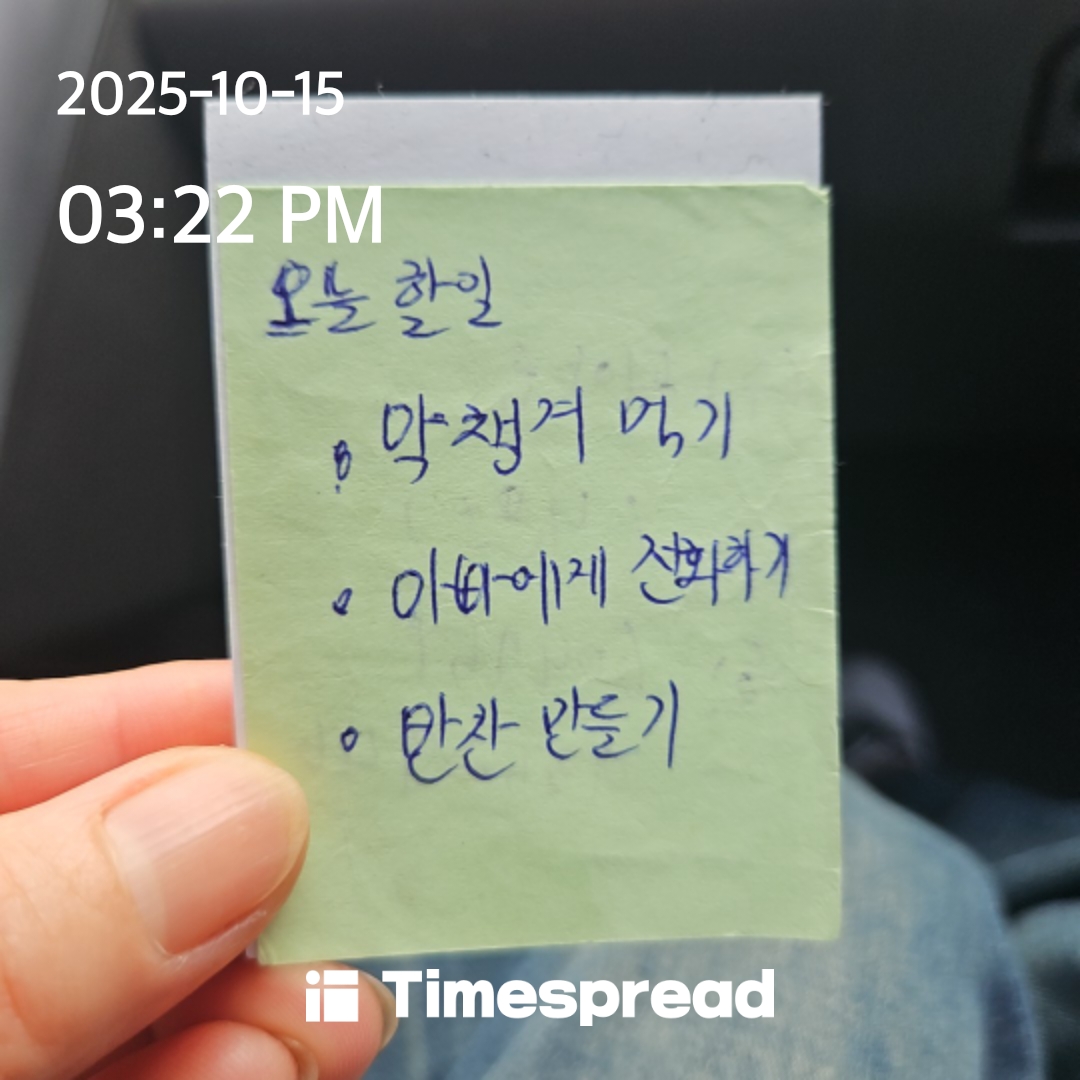 2025-10-15
03:22 PM
오늘 할일
약 챙겨 먹기
아빠에게 전화하기
반찬 만들기
Timespread